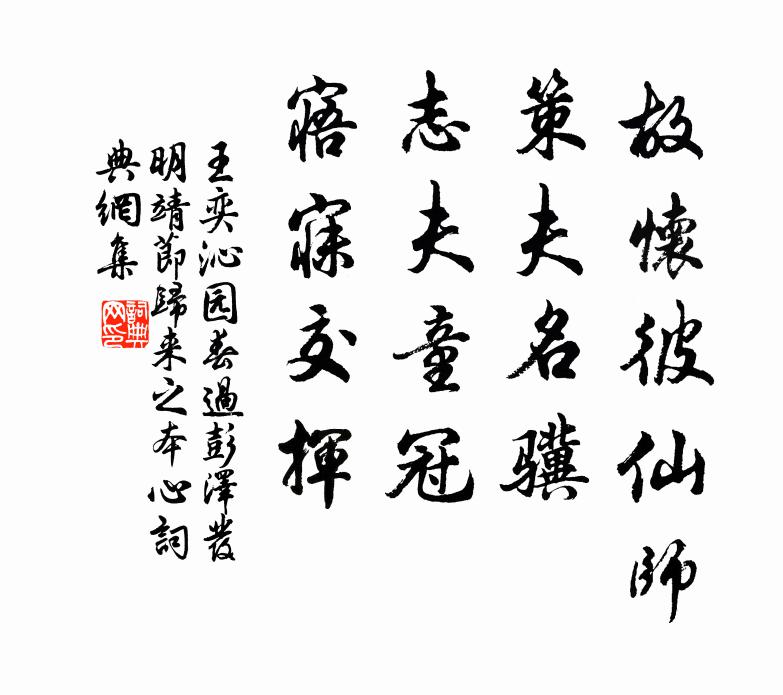 故懷彼仙師
策夫名驥
志夫童冠
寤寐交揮
王奕沁园春過彭澤發
明靖節歸来之本心詞
典網集
詞典
网印